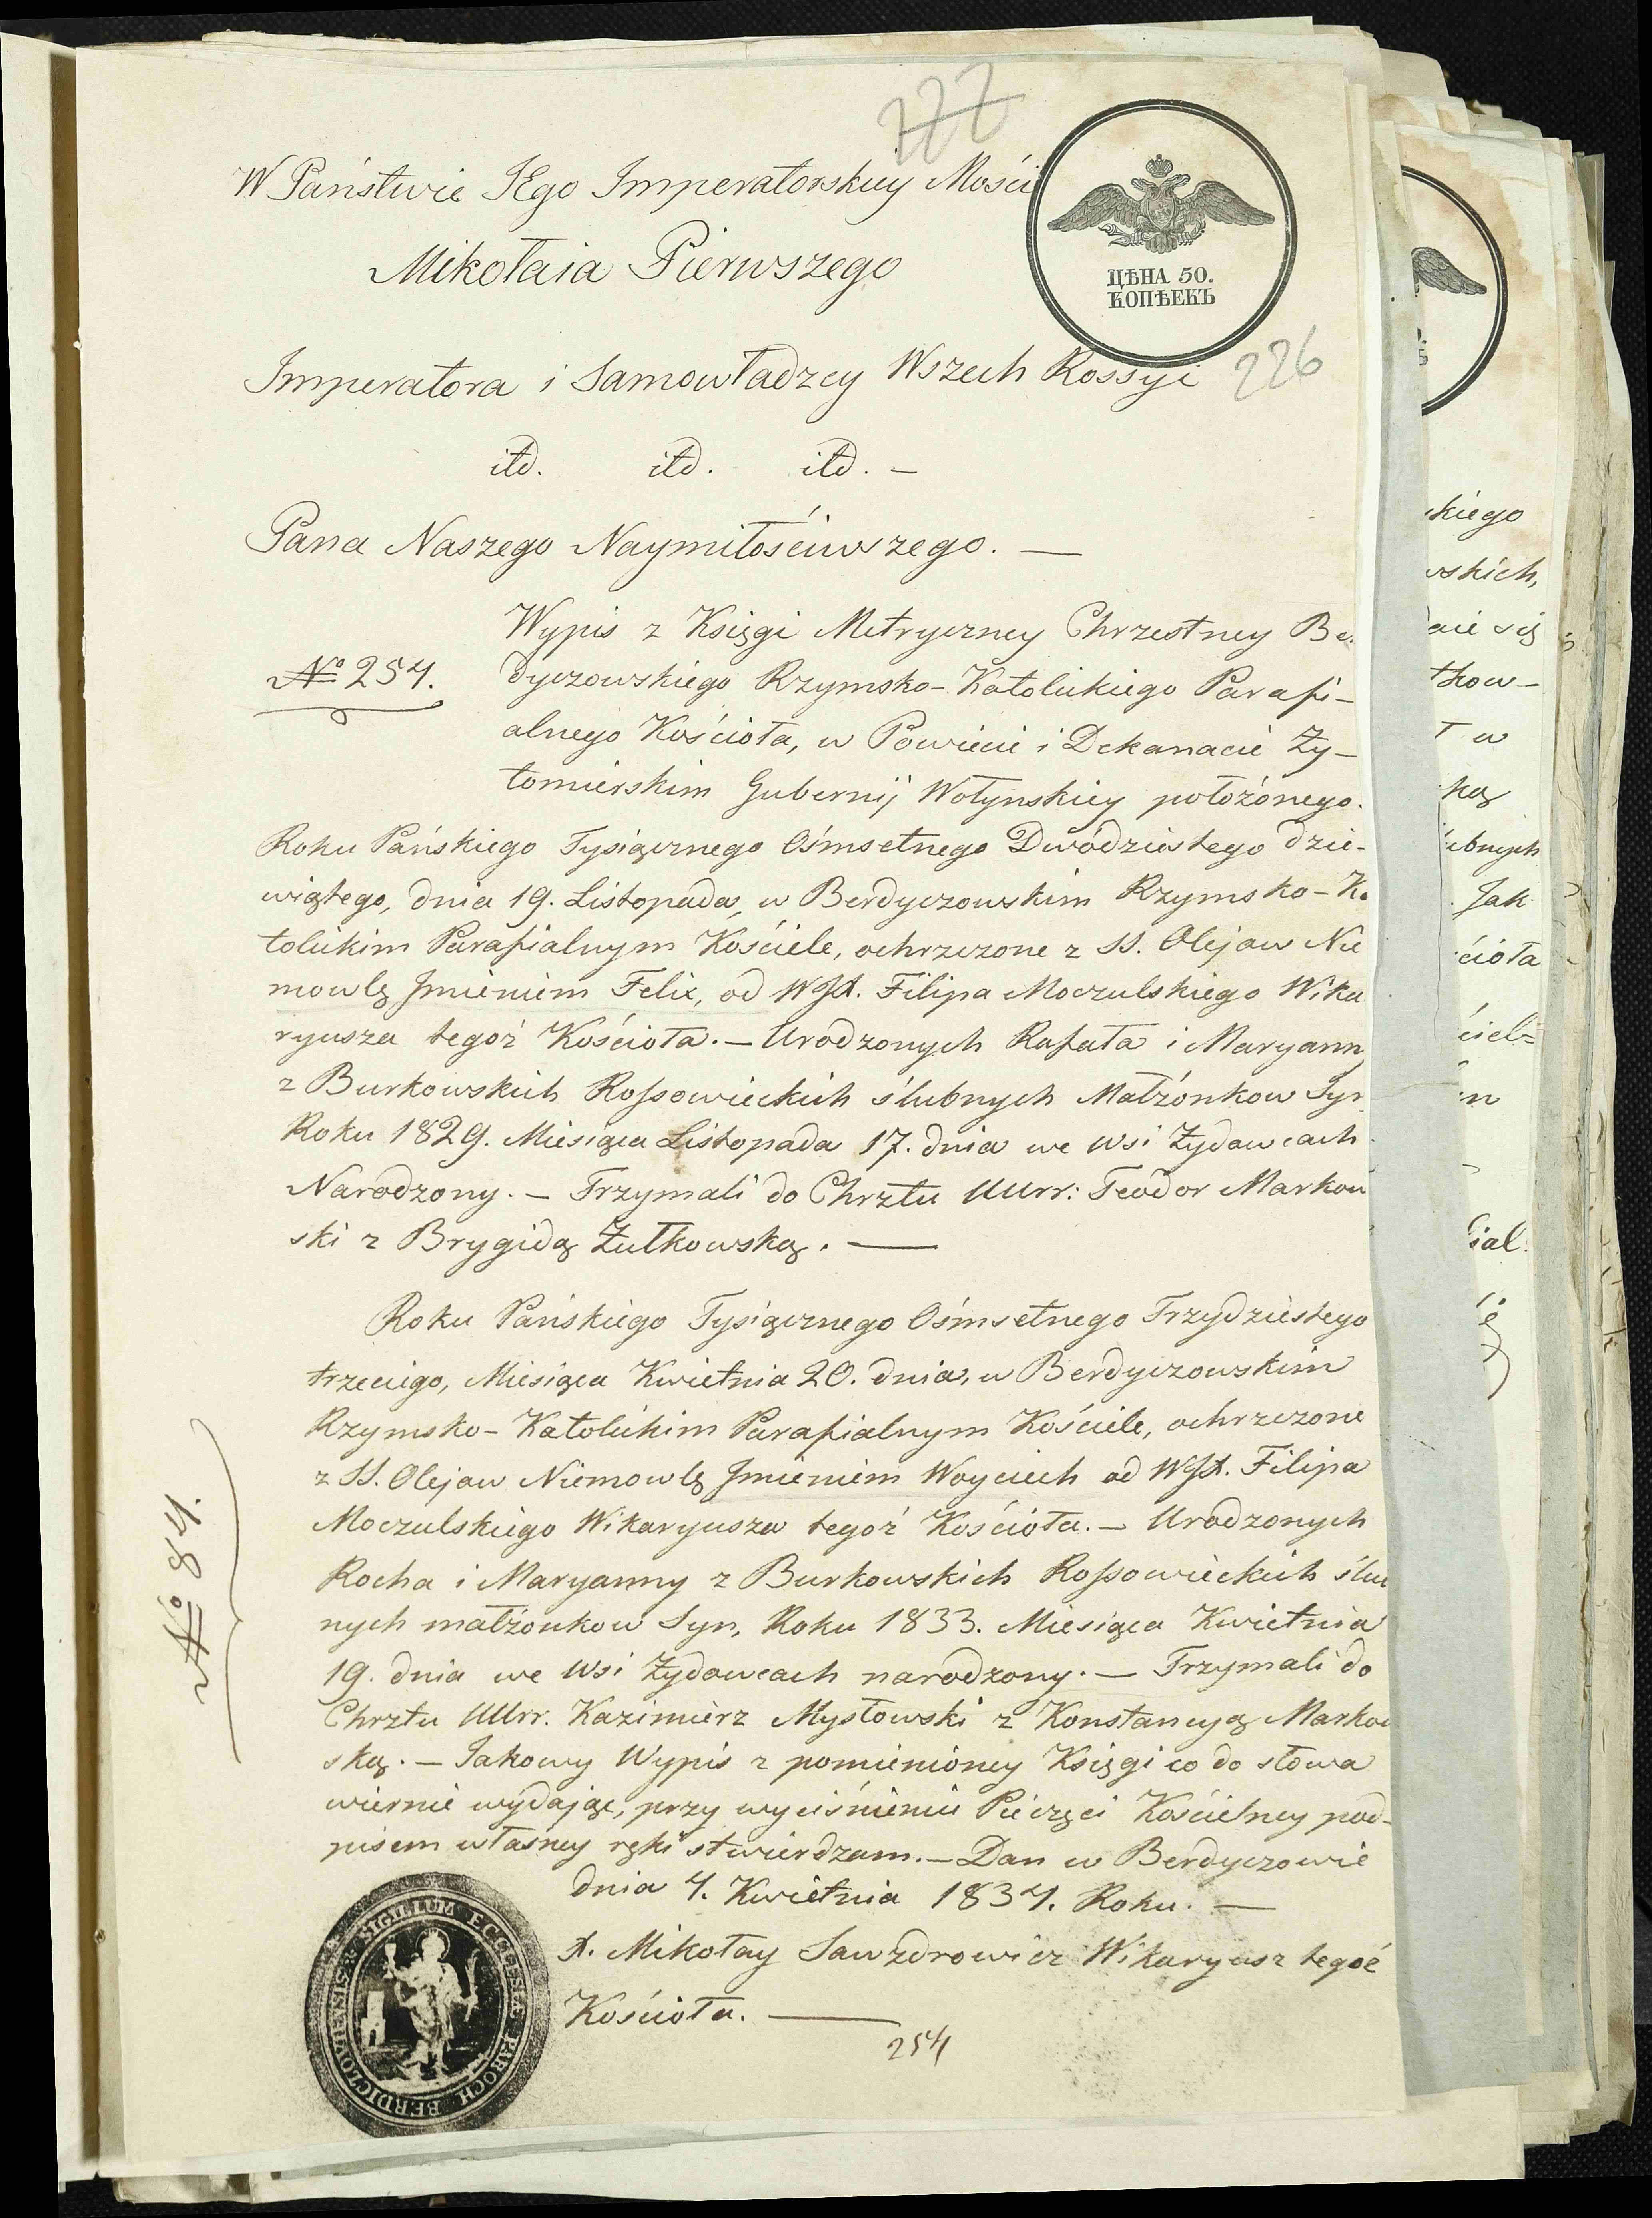 777
W Państwie JEgo Imperatorskiey Mości
Mikołaia Pierwszego
ЦѢНА 50.
КОПѢЕКЪ
Imperatora i Samowładzcy Wszech Rossyi
226
itd. itd. itd. —
Pana Naszego Naymiłościwszego. —
Wypis z Księgi Metryczney Chrzestney Be.
№ 254.
dyczowskiego Rzymsko-Katolickiego Parafi-
alnego Kościoła, w Powiecie i Dekanacie Ży-
tomierskim Gubernij Wołynskiey położónego.
Roku Pańskiego Tysiącznego Ośmsetnego Dwódziestego dzie-
wiątego, dnia 19. Listopada, w Berdyczowskim Rzymsko-Ka
tolickim Parafialnym Kościele, ochrzczone z SS. Olejow Nie
mowlę Jmieniem Felix, od WJX. Filipa Moczulskiego Wika
ryusza tegoż Kościoła. — Urodzonych Rafała i Maryann
z Burkowskich Rossowieckich ślubnych Małżónkow Syn
Roku 1829. Miesiąca Listopada 17. dnia we wsi Żydowcach
Narodzony. — Trzymali do Chrztu UUrr: Teodor Markow
ski z Brygidą Żułkowską. —
Roku Pańskiego Tysiącznego Ośmsetnego Trzydziestego
trzeciego, Miesiąca Kwietnia 20. dnia, w Berdyczowskim
Rzymsko-Katolickim Parafialnym Kościele, ochrzczone
z SS. Olejow Niemowlę Jmieniem Woyciech od WJX. Filipa
№ 84.
Moczulskiego Wikaryusza tegoż Kościoła. — Urodzonych
Rocha i Maryanny z Burkowskich Rossowieckich ślu
nych małżonkow Syn, Roku 1833. Miesiąca Kwietnia
19. dnia we wsi Żydowcach narodzony. — Trzymali do
Chrztu UUrr. Kazimierz Mysłowski z Konstancyą Markow
ską. — Jakowy Wypis z pomienióney Księgi co do słowa
wiernie wydając, przy wyciśnieniu Pieczęci Kościelney pod-
pisem własney ręki stwierdzam. — Dan w Berdyczowie
dnia 4. Kwietnia 1834. Roku. —
X. Mikołay Sawzdrowicz Wikaryusz tegoż
Kościoła. —
254
SIGILLUM ECCLESIÆ PAROCH BERDICZOVIENSIS
kiego
wskich,
kow-
w
ubnych
Jak
cioła
ciel=